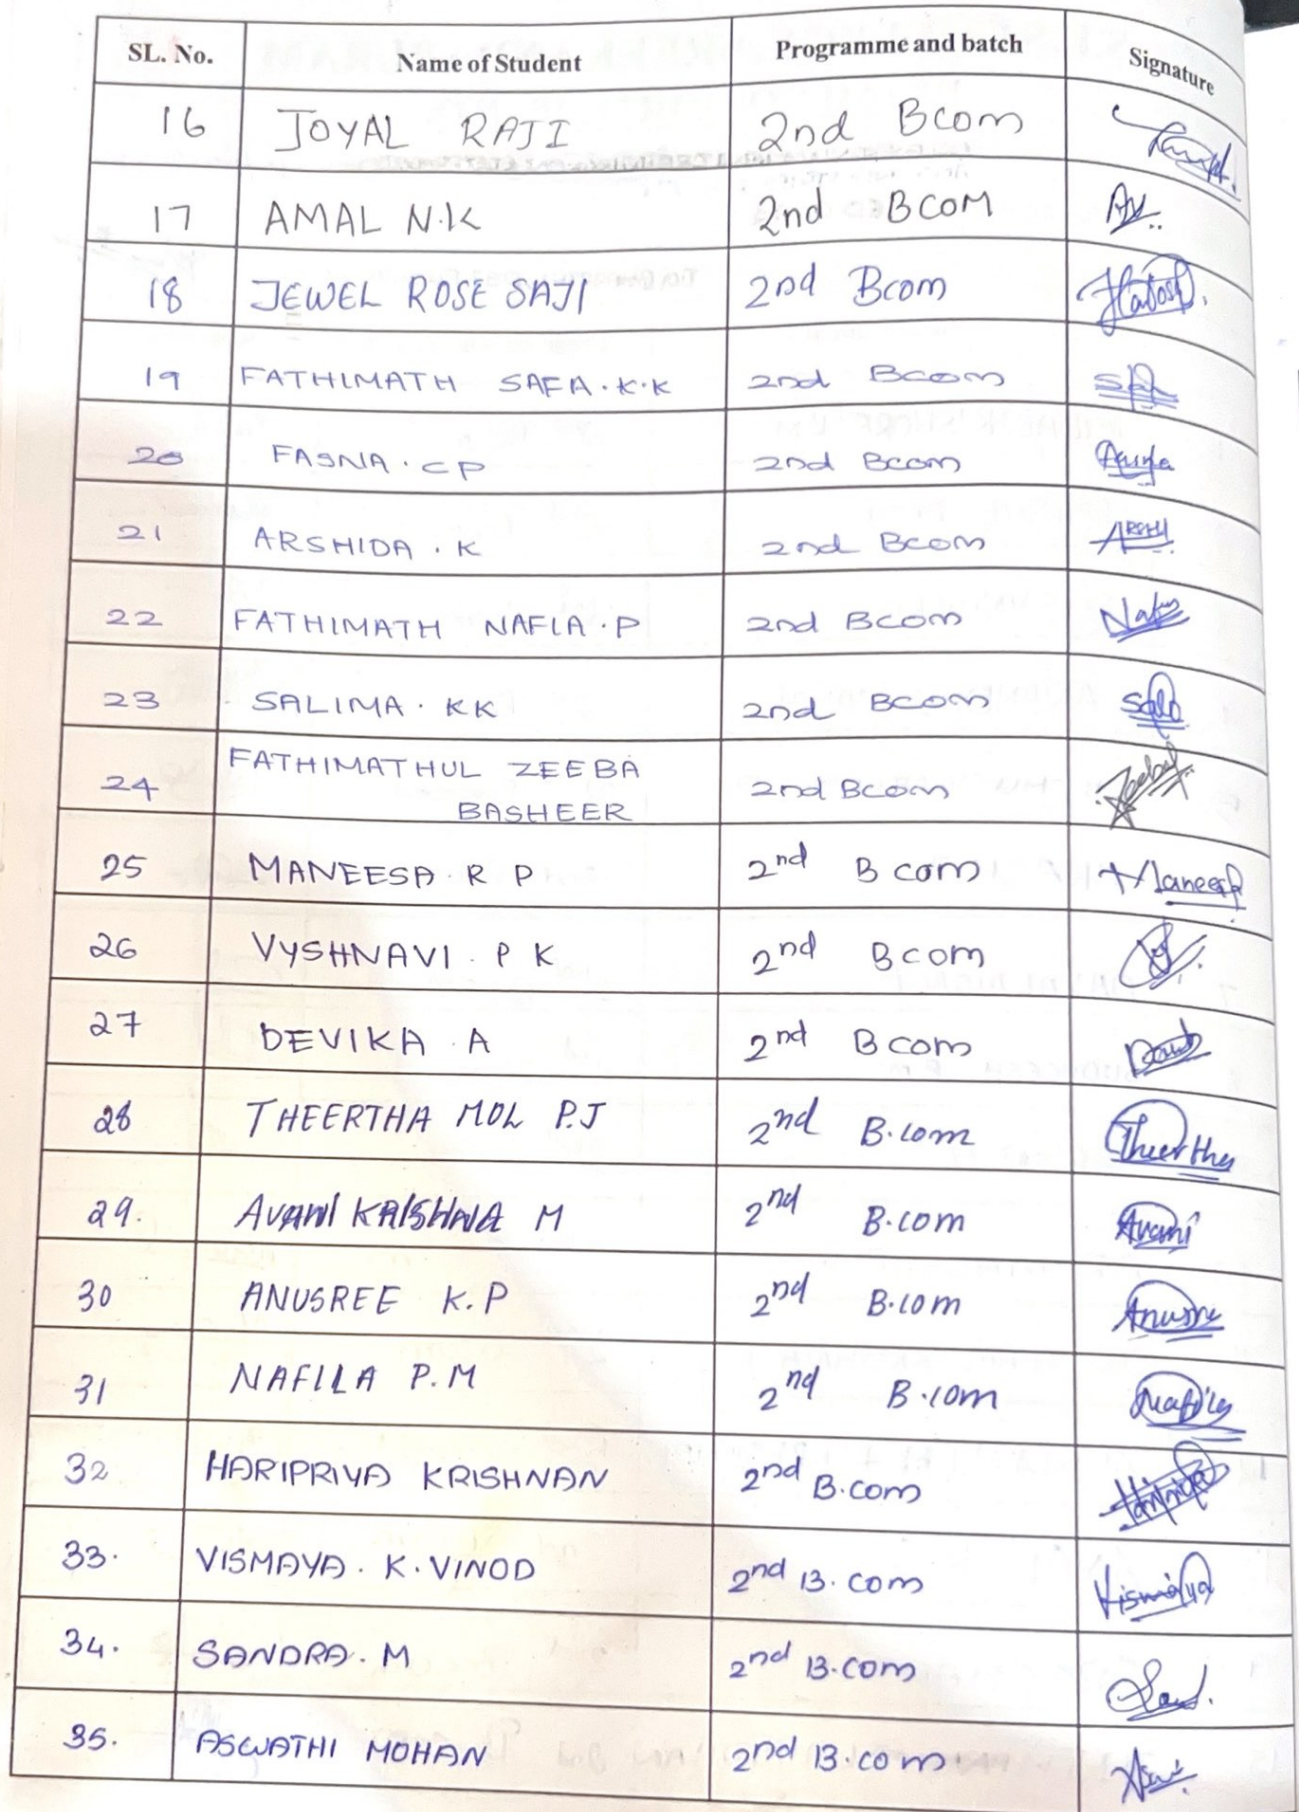 SL. No. Name of Student Programme and batch Signature
16 JOYAL RAJI 2nd Bcom
17 AMAL N.K 2nd BCOM
18 JEWEL ROSE SAJI 2nd Bcom
19 FATHIMATH SAFA.K.K 2nd Bcom
20 FASNA.CP 2nd Bcom
21 ARSHIDA.K 2nd Bcom
22 FATHIMATH NAFLA.P 2nd Bcom
23 SALIMA.KK 2nd Bcom
24 FATHIMATHUL ZEEBA 2nd Bcom
BASHEER
25 MANEESA R P 2nd B com Maneesa
26 VYSHNAVI.P K 2nd B com
27 DEVIKA.A 2nd B com
28 THEERTHA MOL P.J 2nd B.com Theertha
29. AVANI KRISHNA M 2nd B.com Avani
30 ANUSREE K.P 2nd B.com
31 NAFILA P.M 2nd B.com Nafila
32 HARIPRIYA KRISHNAN 2nd B.com
33. VISMAYA.K.VINOD 2nd B.com Vismaya
34. SANDRA.M 2nd B.com
35. ASWATHI MOHAN 2nd B.com